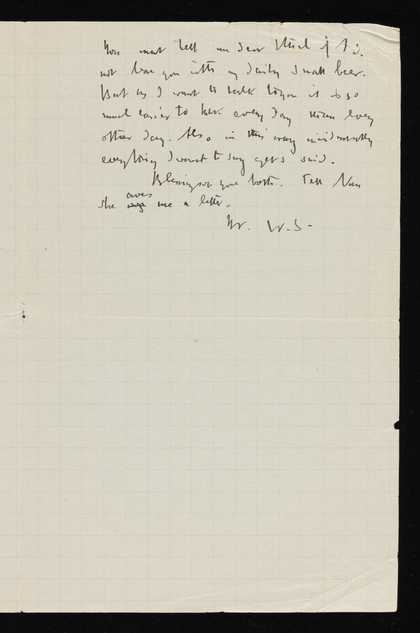 You must tell me dear Ethel if I do
not bore you with my daily small beer.
But as I want to talk to you it is so
much easier to talk every day than every
other day. Also in this way incidentally
everything I want to say gets said.
Blessings on you both. Tell Nan
she owes me a letter.
W.S.